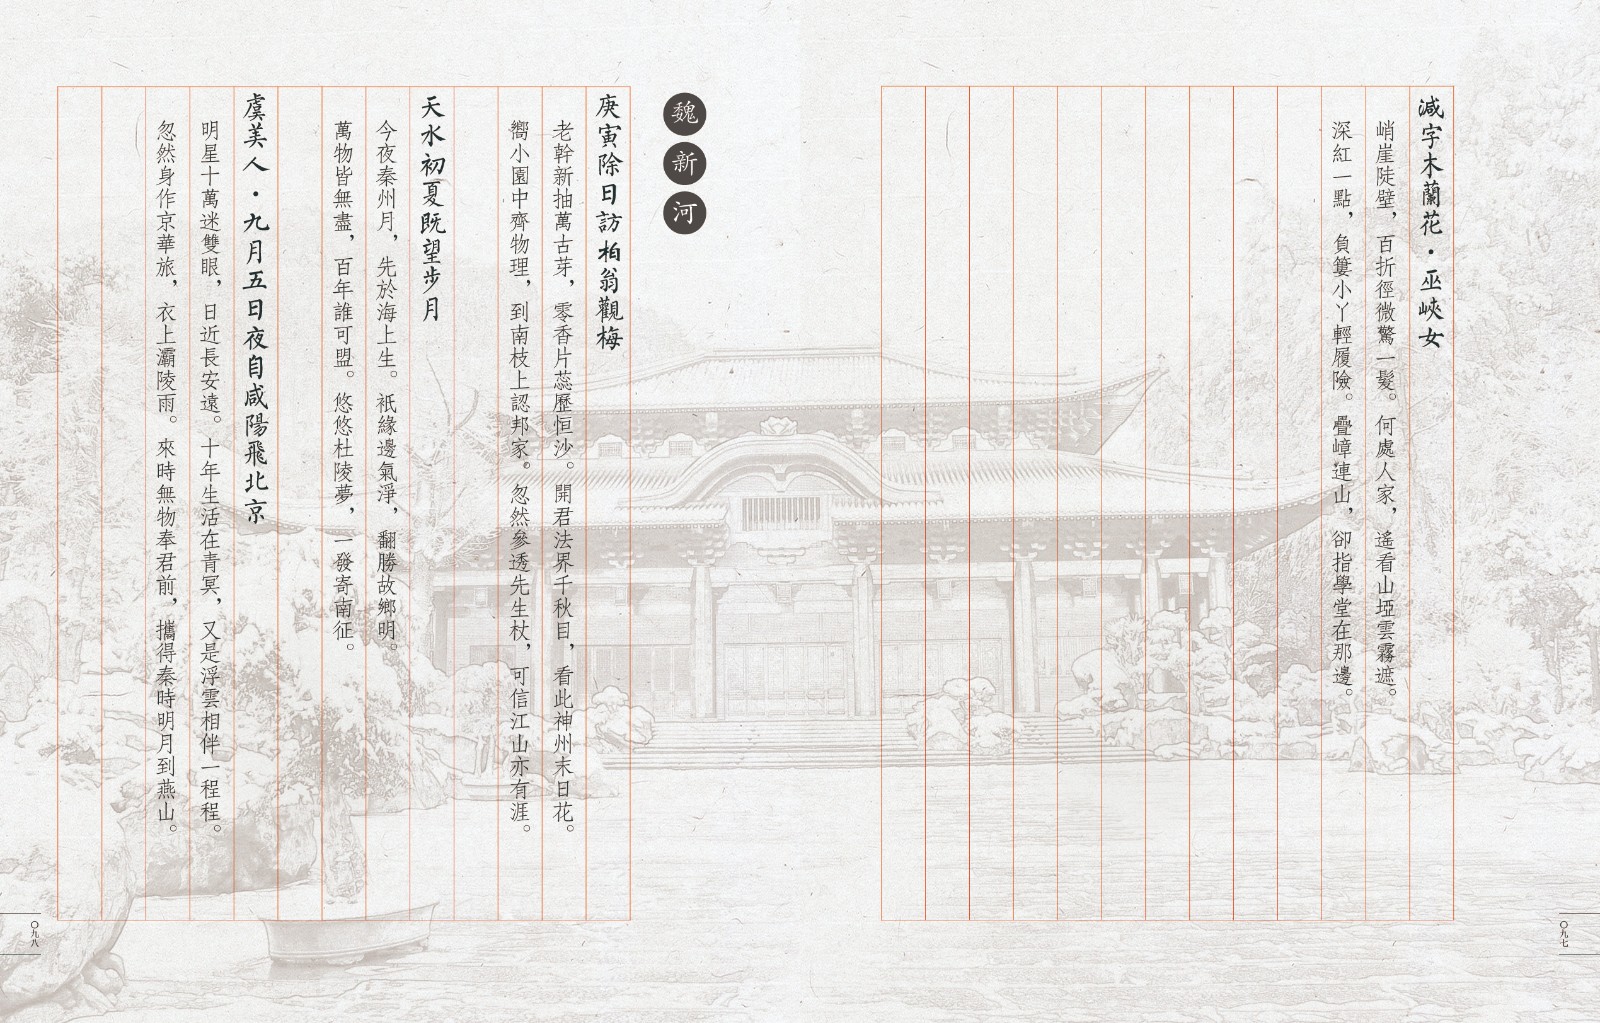 減字木蘭花·巫峽女
峭崖陡壁，百折徑微驚一髮。何處人家，遙看山埡雲霧遮。
深紅一點，負簍小丫輕履險。疊嶂連山，卻指學堂在那邊。
〇九七
魏新河
庚寅除日訪柏翁觀梅
老幹新抽萬古芽，零香片蕊歷恒沙。開君法界千秋目，看此神州末日花。
嚮小園中齊物理，到南枝上認邦家。忽然參透先生杖，可信江山亦有涯。
天水初夏既望步月
今夜秦州月，先於海上生。衹緣邊氣淨，翻勝故鄉明。
萬物皆無盡，百年誰可盟。悠悠杜陵夢，一發寄南征。
虞美人·九月五日夜自咸陽飛北京
明星十萬迷雙眼，日近長安遠。十年生活在青冥，又是浮雲相伴一程程。
忽然身作京華旅，衣上灞陵雨。來時無物奉君前，攜得秦時明月到燕山。
〇九八